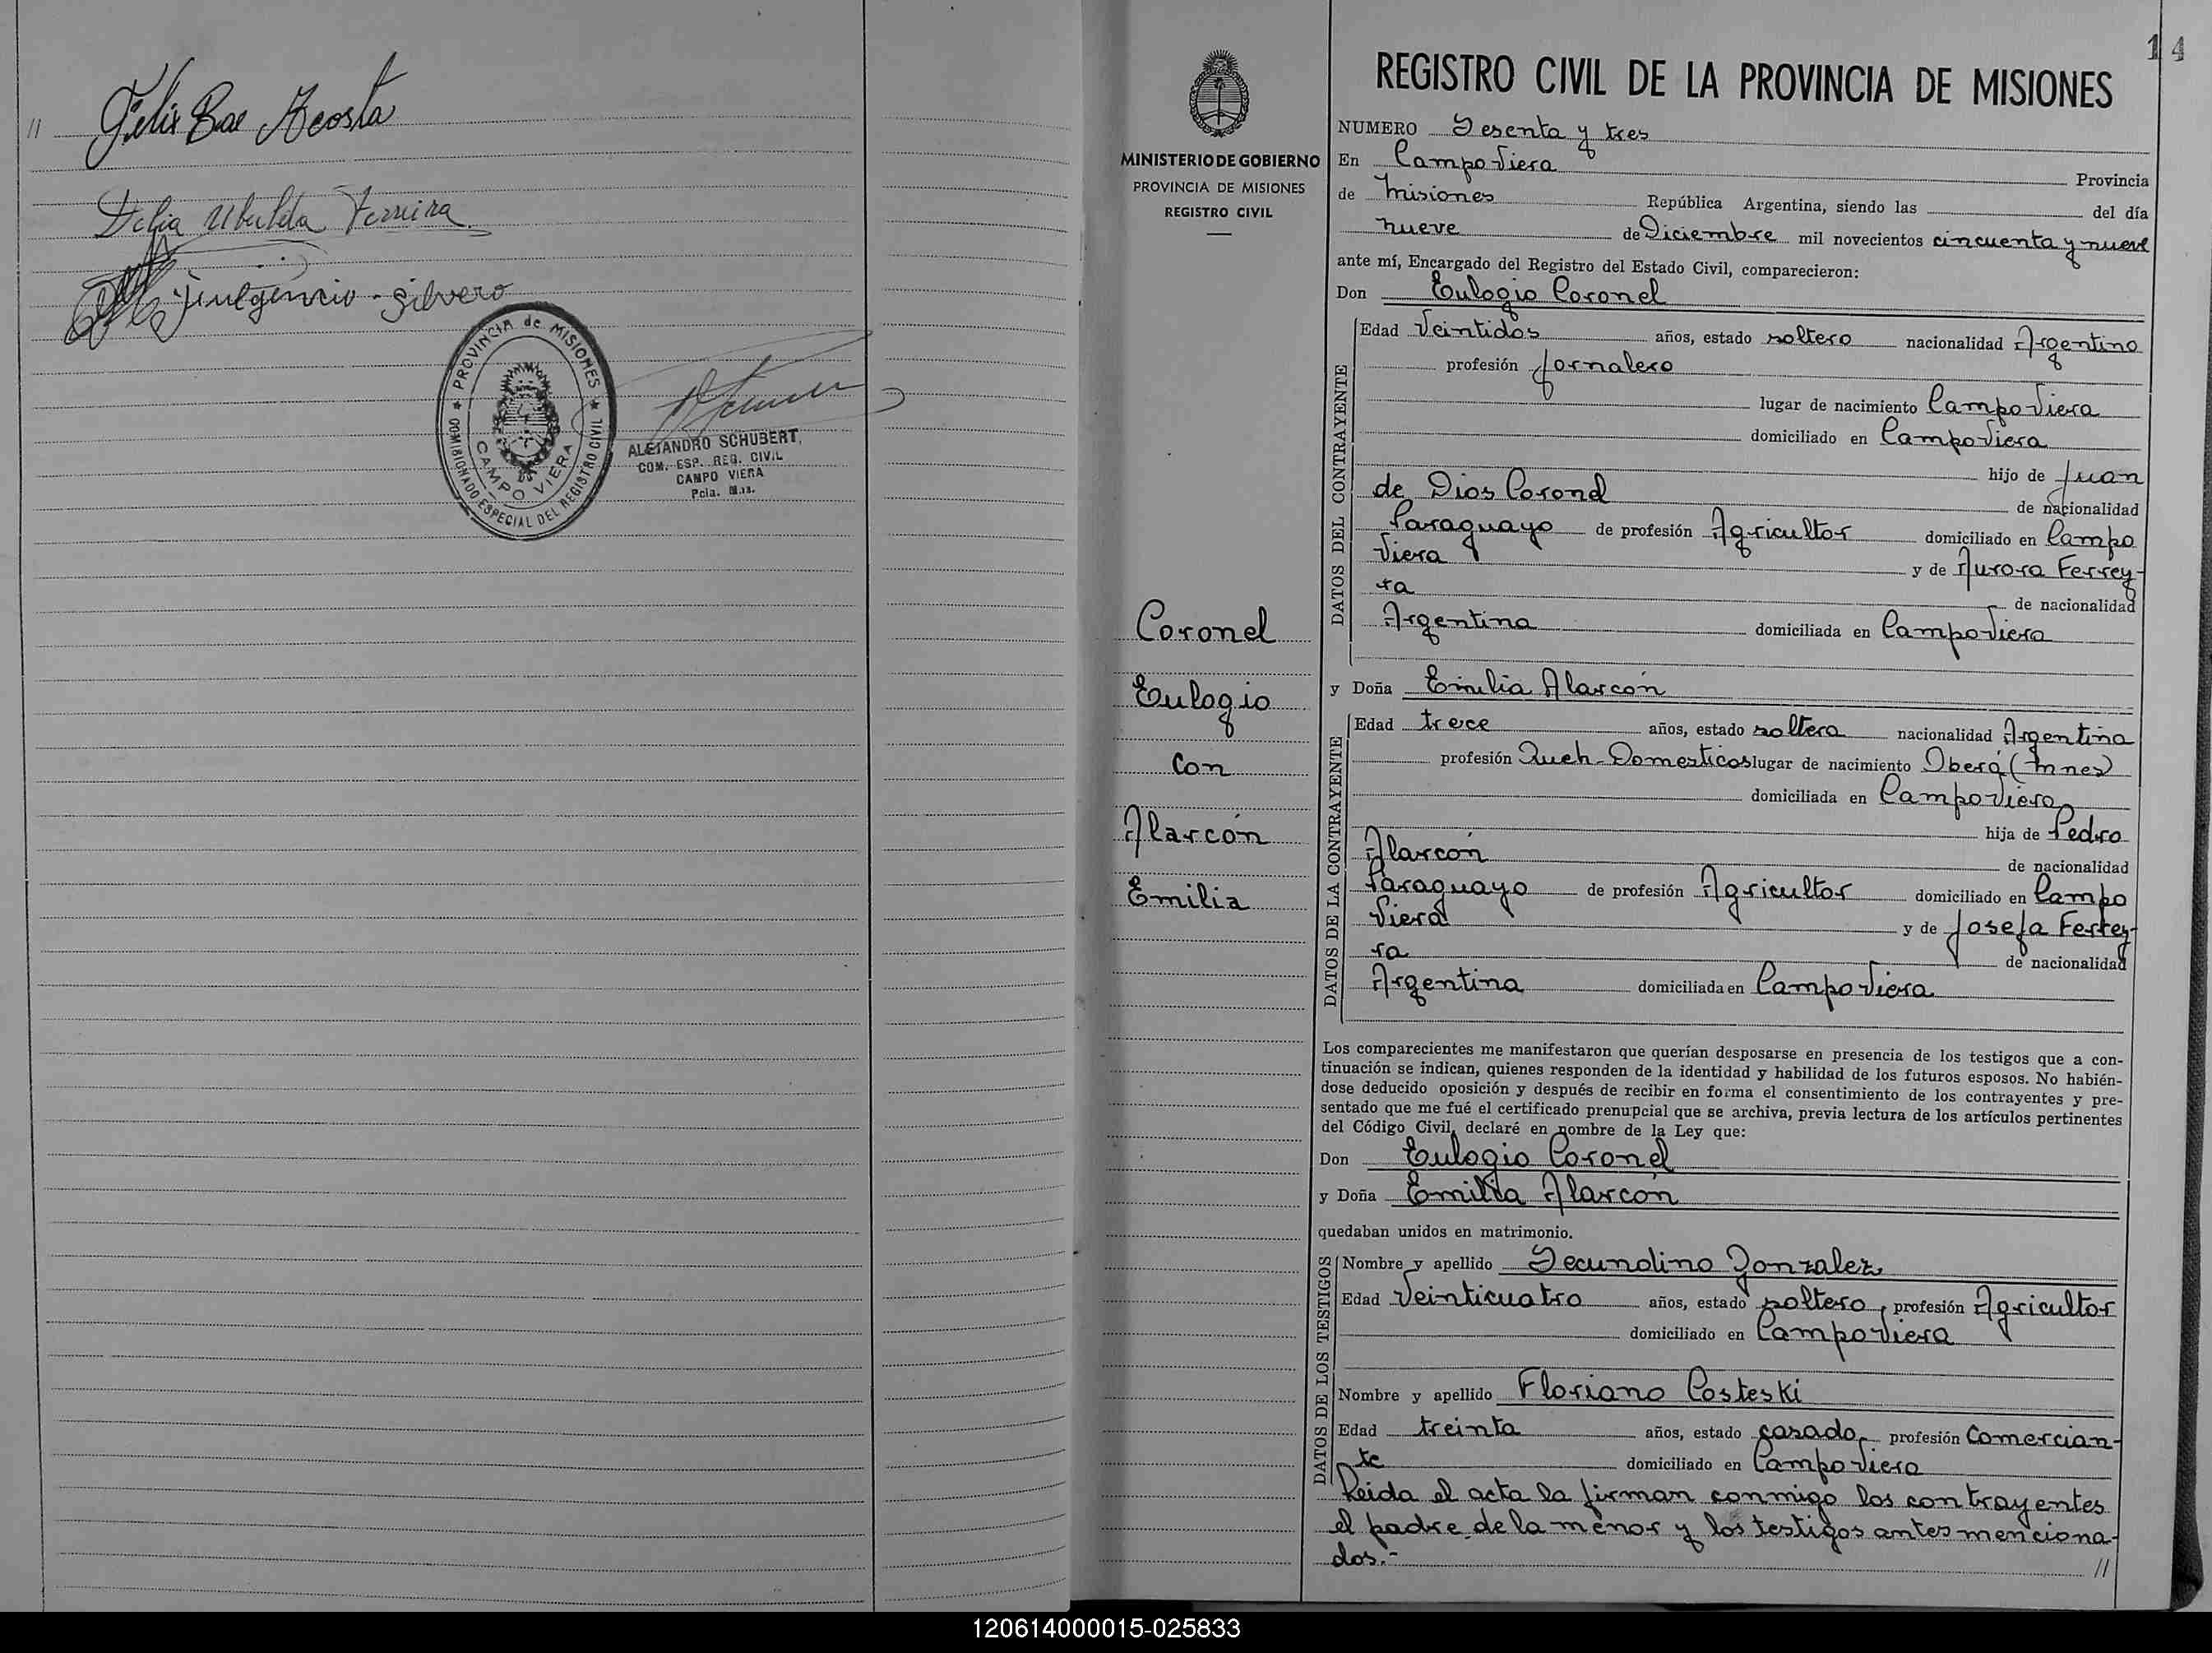 // Felix Bae Acosta
Delia Ubalda Ferreira
Fulgencio Silvero
PROVINCIA de MISIONES
COMISIONADO ESPECIAL DEL REGISTRO CIVIL
CAMPO VIERA
ALEJANDRO SCHUBERT,
COM. ESP. REG. CIVIL
CAMPO VIERA
Pcia. Mis.
14
MINISTERIO DE GOBIERNO
PROVINCIA DE MISIONES
REGISTRO CIVIL
Coronel
Eulogio
Con
Alarcón
Emilia
REGISTRO CIVIL DE LA PROVINCIA DE MISIONES
NUMERO Sesenta y tres
En Campo Viera Provincia
de Misiones República Argentina, siendo las del día
nueve de Diciembre mil novecientos cincuenta y nueve
ante mí, Encargado del Registro del Estado Civil, comparecieron:
Don Eulogio Coronel
DATOS DEL CONTRAYENTE
Edad Veintidos años, estado soltero nacionalidad Argentino
profesión Jornalero
lugar de nacimiento Campo Viera
domiciliado en Campo Viera
hijo de Juan
de Dios Coronel de nacionalidad
Paraguayo de profesión Agricultor domiciliado en Campo
Viera y de Aurora Ferrey-
ra de nacionalidad
Argentina domiciliada en Campo Viera
y Doña Emilia Alarcón
DATOS DE LA CONTRAYENTE
Edad trece años, estado soltera nacionalidad Argentina
profesión Queh-Domesticos lugar de nacimiento Oberá (Mnes)
domiciliada en Campo Viera
hija de Pedro
Alarcón de nacionalidad
Paraguayo de profesión Agricultor domiciliado en Campo
Viera y de Josefa Ferrey-
ra de nacionalidad
Argentina domiciliada en Campo Viera
Los comparecientes me manifestaron que querían desposarse en presencia de los testigos que a con-
tinuación se indican, quienes responden de la identidad y habilidad de los futuros esposos. No habién-
dose deducido oposición y después de recibir en forma el consentimiento de los contrayentes y pre-
sentado que me fué el certificado prenupcial que se archiva, previa lectura de los artículos pertinentes
del Código Civil, declaré en nombre de la Ley que:
Don Eulogio Coronel
y Doña Emilia Alarcón
quedaban unidos en matrimonio.
DATOS DE LOS TESTIGOS
Nombre y apellido Secundino Gonzalez
Edad Veinticuatro años, estado soltero, profesión Agricultor
domiciliado en Campo Viera
Nombre y apellido Floriano Costeski
Edad treinta años, estado casado, profesión Comercian-
te domiciliado en Campo Viera
Leida el acta la firman conmigo los contrayentes
el padre de la menor y los testigos antes menciona-
dos.- //
120614000015-025833